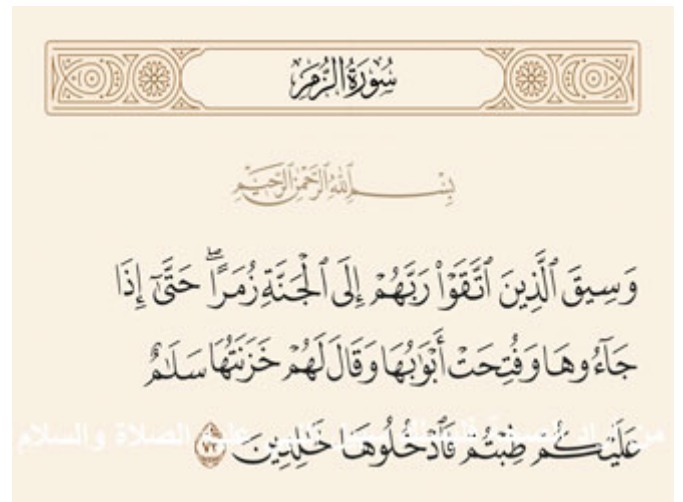 سُورَةُ الزُّمَرِ
بِسْمِ ٱللَّهِ ٱلرَّحْمَٰنِ ٱلرَّحِيمِ
وَسِيقَ ٱلَّذِينَ ٱتَّقَوْا۟ رَبَّهُمْ إِلَى ٱلْجَنَّةِ زُمَرًا ۖ حَتَّىٰٓ إِذَا
جَآءُوهَا وَفُتِحَتْ أَبْوَٰبُهَا وَقَالَ لَهُمْ خَزَنَتُهَا سَلَٰمٌ
عَلَيْكُمْ طِبْتُمْ فَٱدْخُلُوهَا خَٰلِدِينَ ٧٣
من أراد عليه الصلاة والسلام